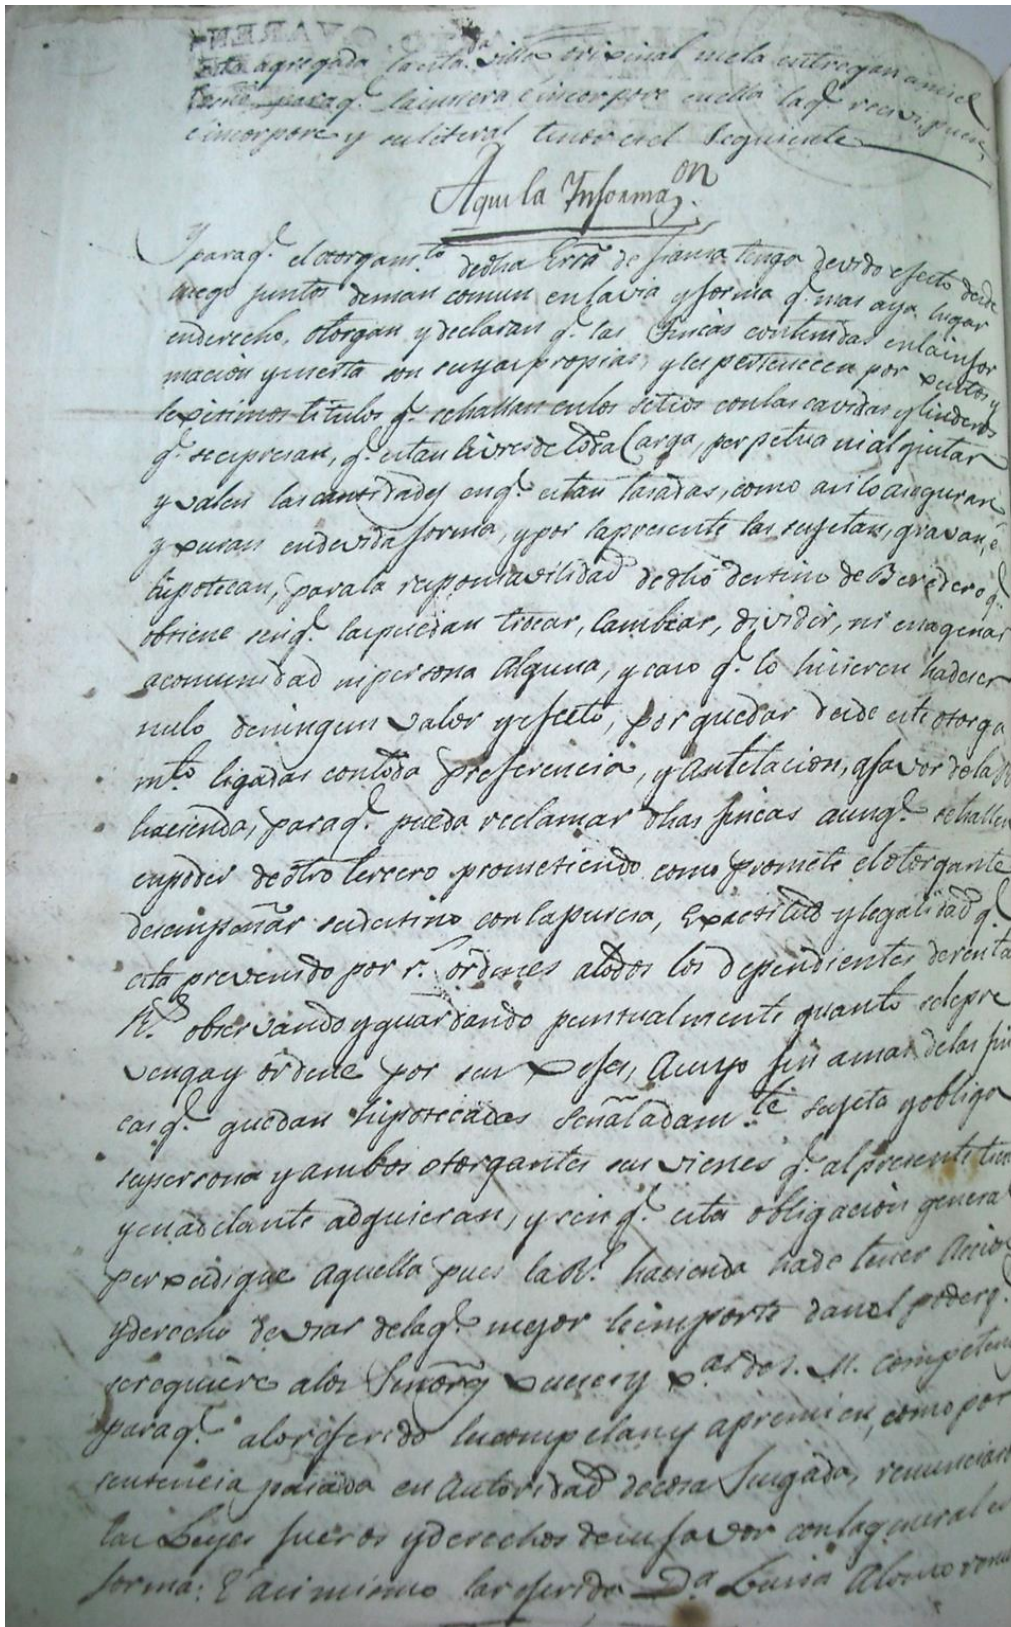 esta agregada la cita da villa orixinal me la entregan a mi el
para q.e la insera e incorpore en ella la q.e recivi, puse,
e incorpore y su literal tenor es el seguiente
Aqui la Informaz.on
Y para q.e el otorgam.to de dha Escrâ de fianza tenga devido efecto desde
luego juntos de man comun en la via y forma q.e mas aya lugar
en derecho, otorgan y declaran q.e las fincas contenidas en la infor
macion ynserta son suyas propias, y les pertenecen por xustos y
lexitimos titulos q.e se hallan en los sitios con las cavidas y linderos
q.e se expresan, q.e estan livres de toda Carga, perpetua ni al quitar
y valen las cantidades en q.e estan tasadas, como asi lo aseguran
y xuran en devida forma, y por la presente las sujetan, gravan, è
hipotecan, para la responsavilidad de dho destino de Veredero q.e
obtiene sin q.e las puedan trocar, Cambiar, dividir, ni enagenar
a comunidad ni persona Alguna, y caso q.e lo hicieren ha de ser
nulo de ningun valor y efecto, por quedar desde este otorga
m.to ligadas con toda preferencia, y Antelacion, a favor de la R.l
hacienda, para q.e pueda reclamar dhas fincas aunq.e se hallen
en poder de otro tercero prometiendo como promete el otorgante
desempeñar su destino con la pureza, Exactitud y legalidad q.e
esta prevenido por r.s ordenes a todos los dependientes de renta
R.s observando y guardando puntualmente quanto se le pre
venga y ordene por sus xefes, A cuyo fin a mas de las fin
cas q.e quedan hipotecadas señaladam.te sujeta y obliga
su persona y ambos otorgantes sus vienes q.e al presente tien
y en adelante adquieran, y sin q.e esta obligacion genera
perxudique Aquella pues la R.l hacienda ha de tener Accio
y derecho de usar de la q.e mejor le importe dan el poder q.e
se requiere a los Señorês xueces y de S. M. competen
para q.e a lo referido les compelan y apremien, como por
sentencia pasada en Autoridad de cosa Juzgada, renuncian
las Leyes fueros y derechos de su favor con la q.e general en
forma: E asimismo la referida D.a Luisa Alonso renu